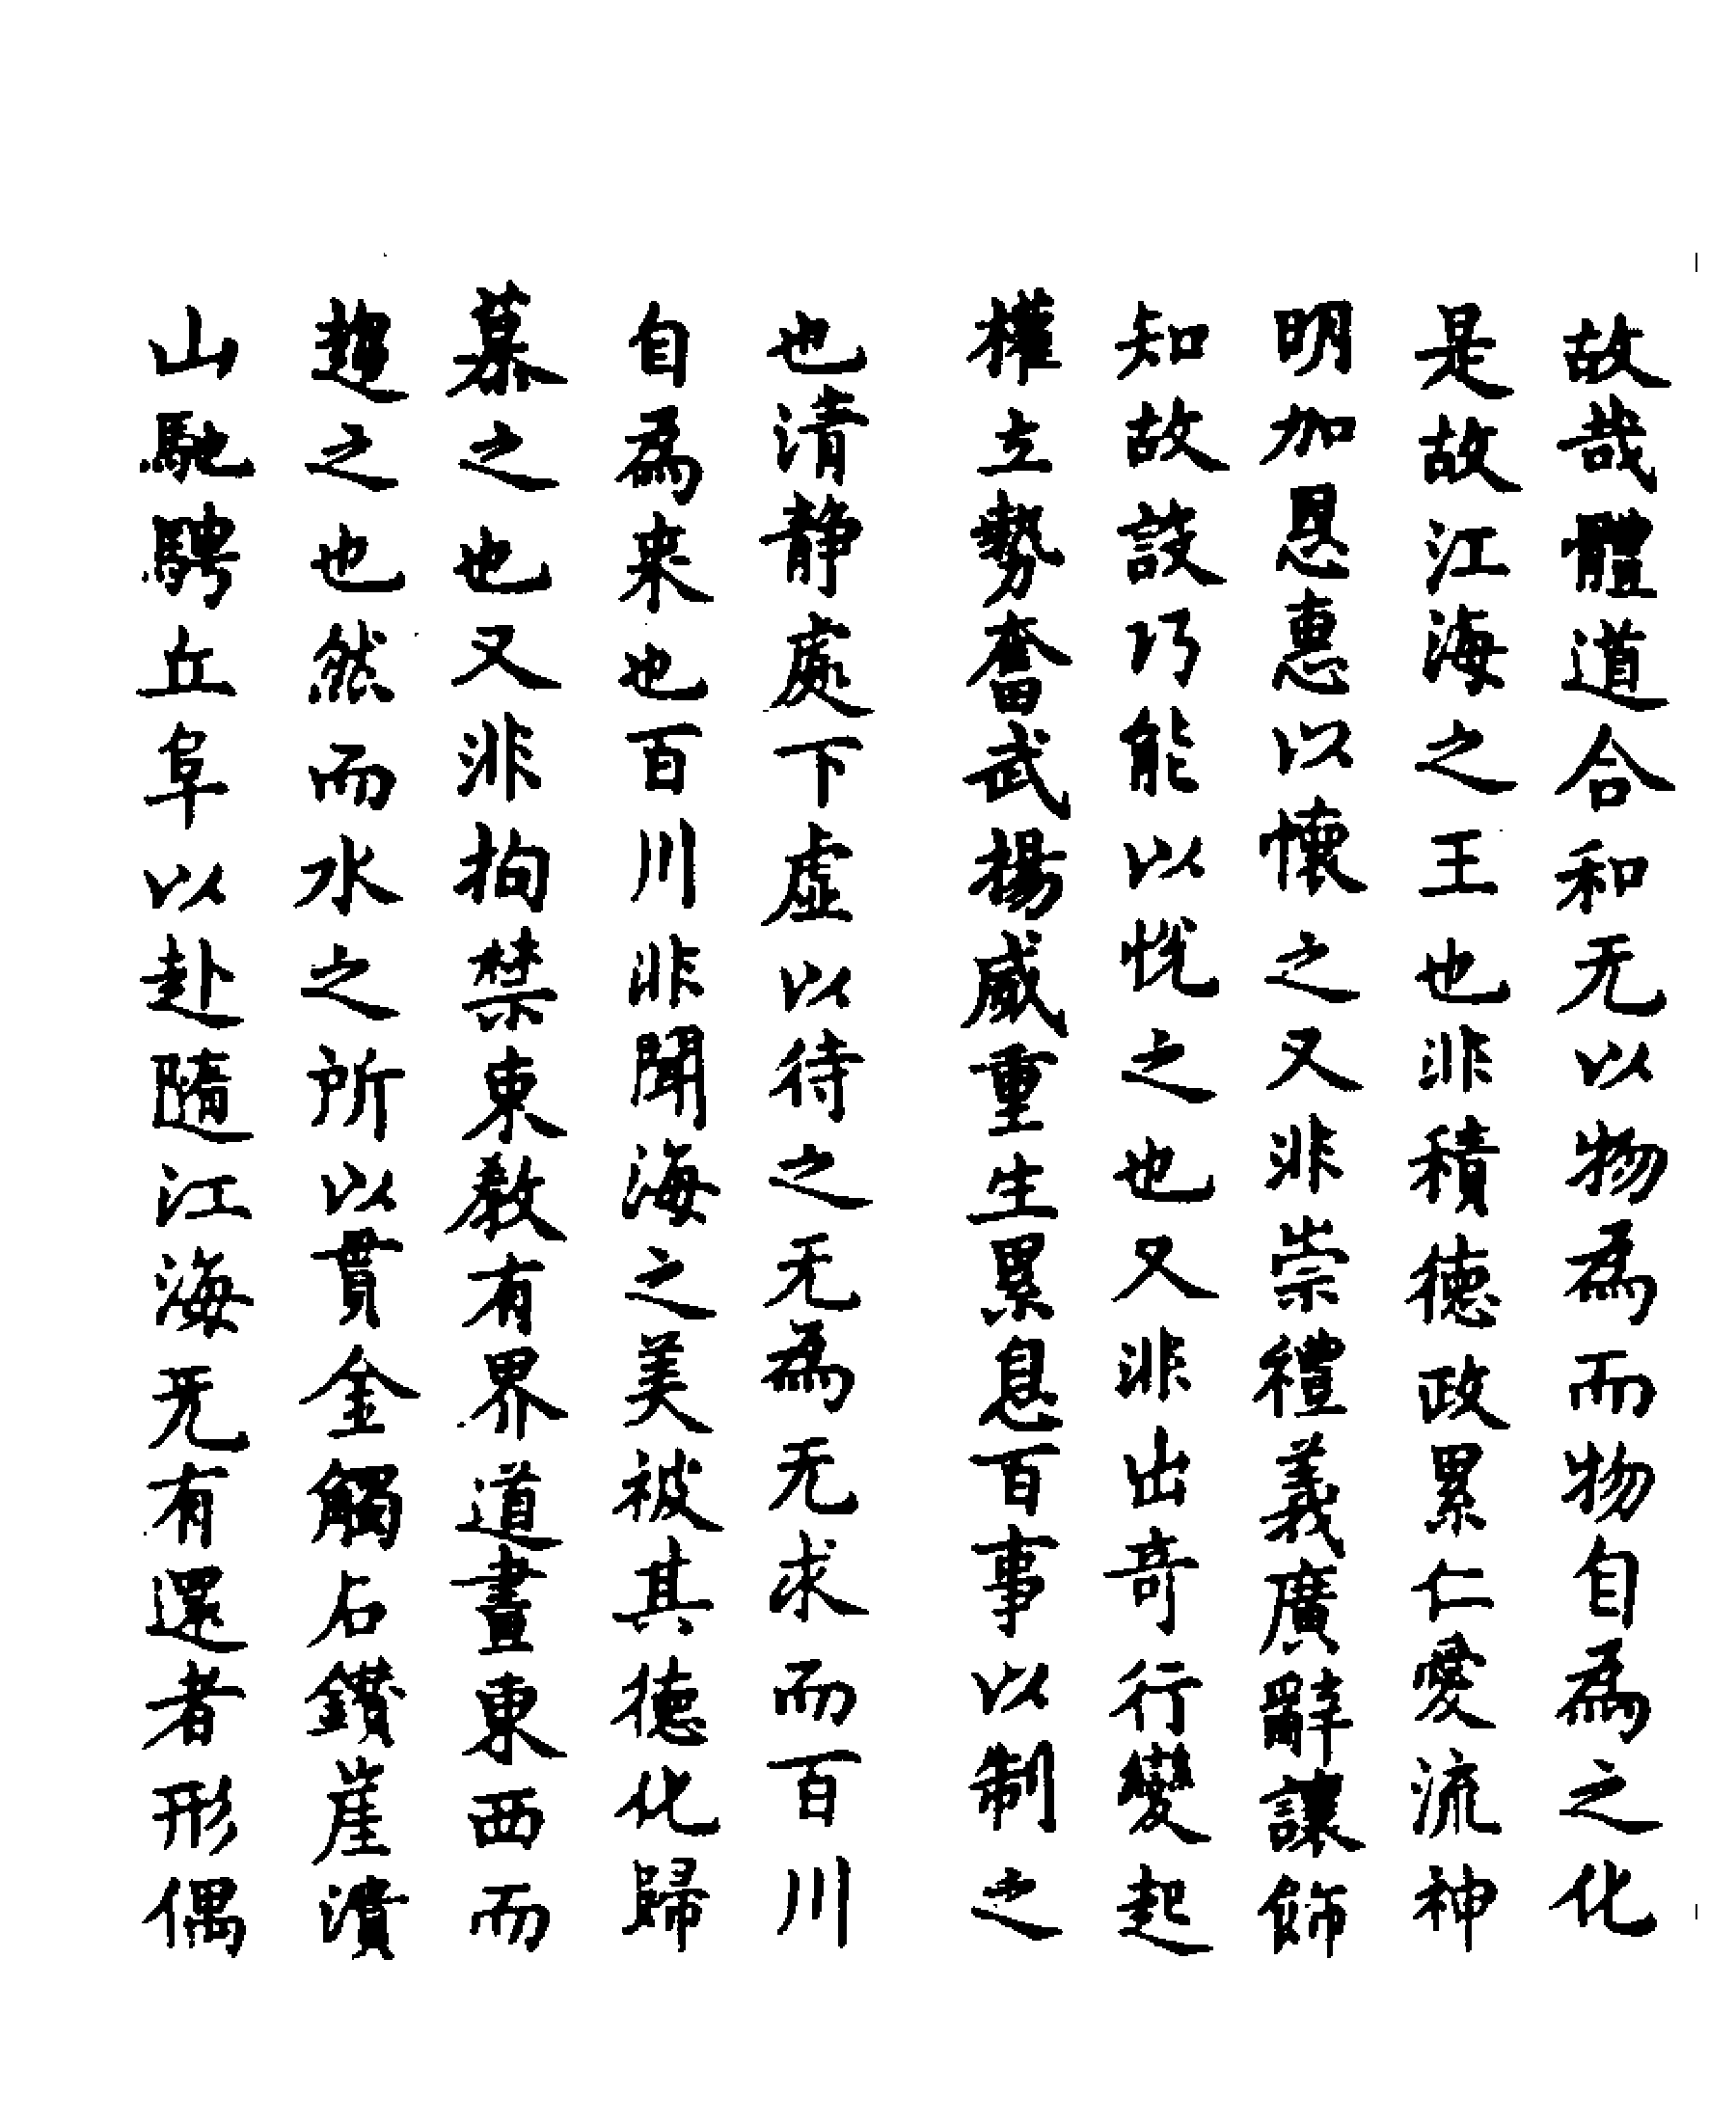 故哉體道合和无以物為而物自為之化
是故江海之王也非積德政累仁愛流神
明加恩惠以懷之又非崇禮義廣辭讓飾
知故設巧能以悅之也又非出奇行變起
權立勢奮武揚威重生累息百事以制之
也清静處下虛以待之无為无求而百川
自為来也百川非聞海之美被其德化歸
慕之也又非拘禁束教有界道畫東西而
趨之也然而水之所以貫金觸石鑽崖潰
山馳騁丘阜以赴隨江海无有還者形偶